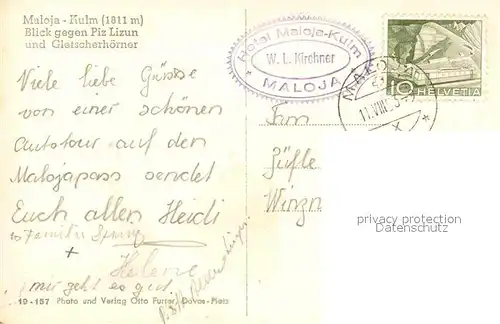 Maloja - Kulm (1811 m)
Blick gegen Piz Lizun
und Gletscherhörner
Hotel Maloja-Kulm
W. L. Kirchner
MALOJA
10 HELVETIA
MALOJA
11.VIII.5
Viele liebe Grüsse
von einer schönen
Autotour auf den
Malojapass sendet
Euch allen Heidi
Familie
+
Helene
mir geht es gut
Fam
Züfle
Winzn
privacy protection watermark
does not appear on the original
19-157 Photo und Verlag Otto Furter, Davos-Platz